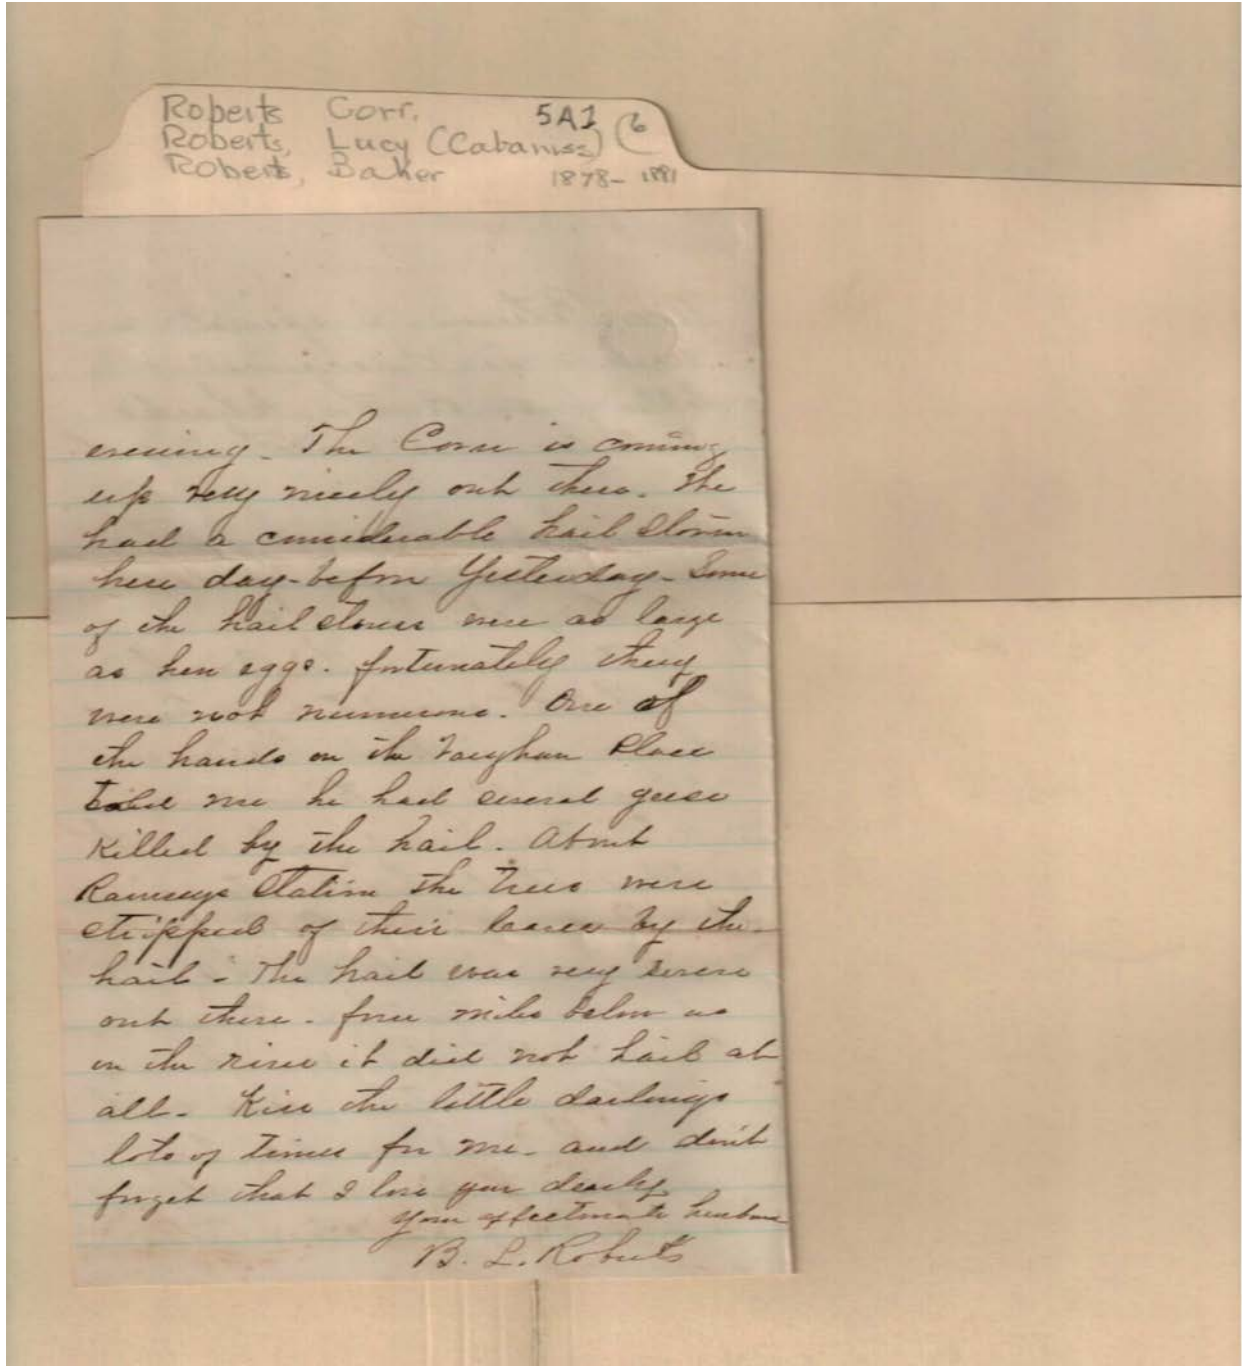 Roberts Corr. 5A1 (6
Roberts, Lucy (Cabaniss)
Roberts, Baker 1878-1881
evening. The Corn is coming
up very nicely out there. We
had a considerable hail storm
here day-before Yesterday- Some
of the hail stones were as large
as hen eggs. fortunately they
were not numerous. One of
the hands on the Vaughan Place
told me he had several geese
Killed by the hail. About
Ramseys Station the Trees were
stripped of their leaves by the
hail - The hail was very severe
out there - four miles below us
on the river it did not hail at
all- Kiss the little darlings
lots of times for me- and don't
forget that I love you dearly
Your affectionate husband
B. L. Roberts